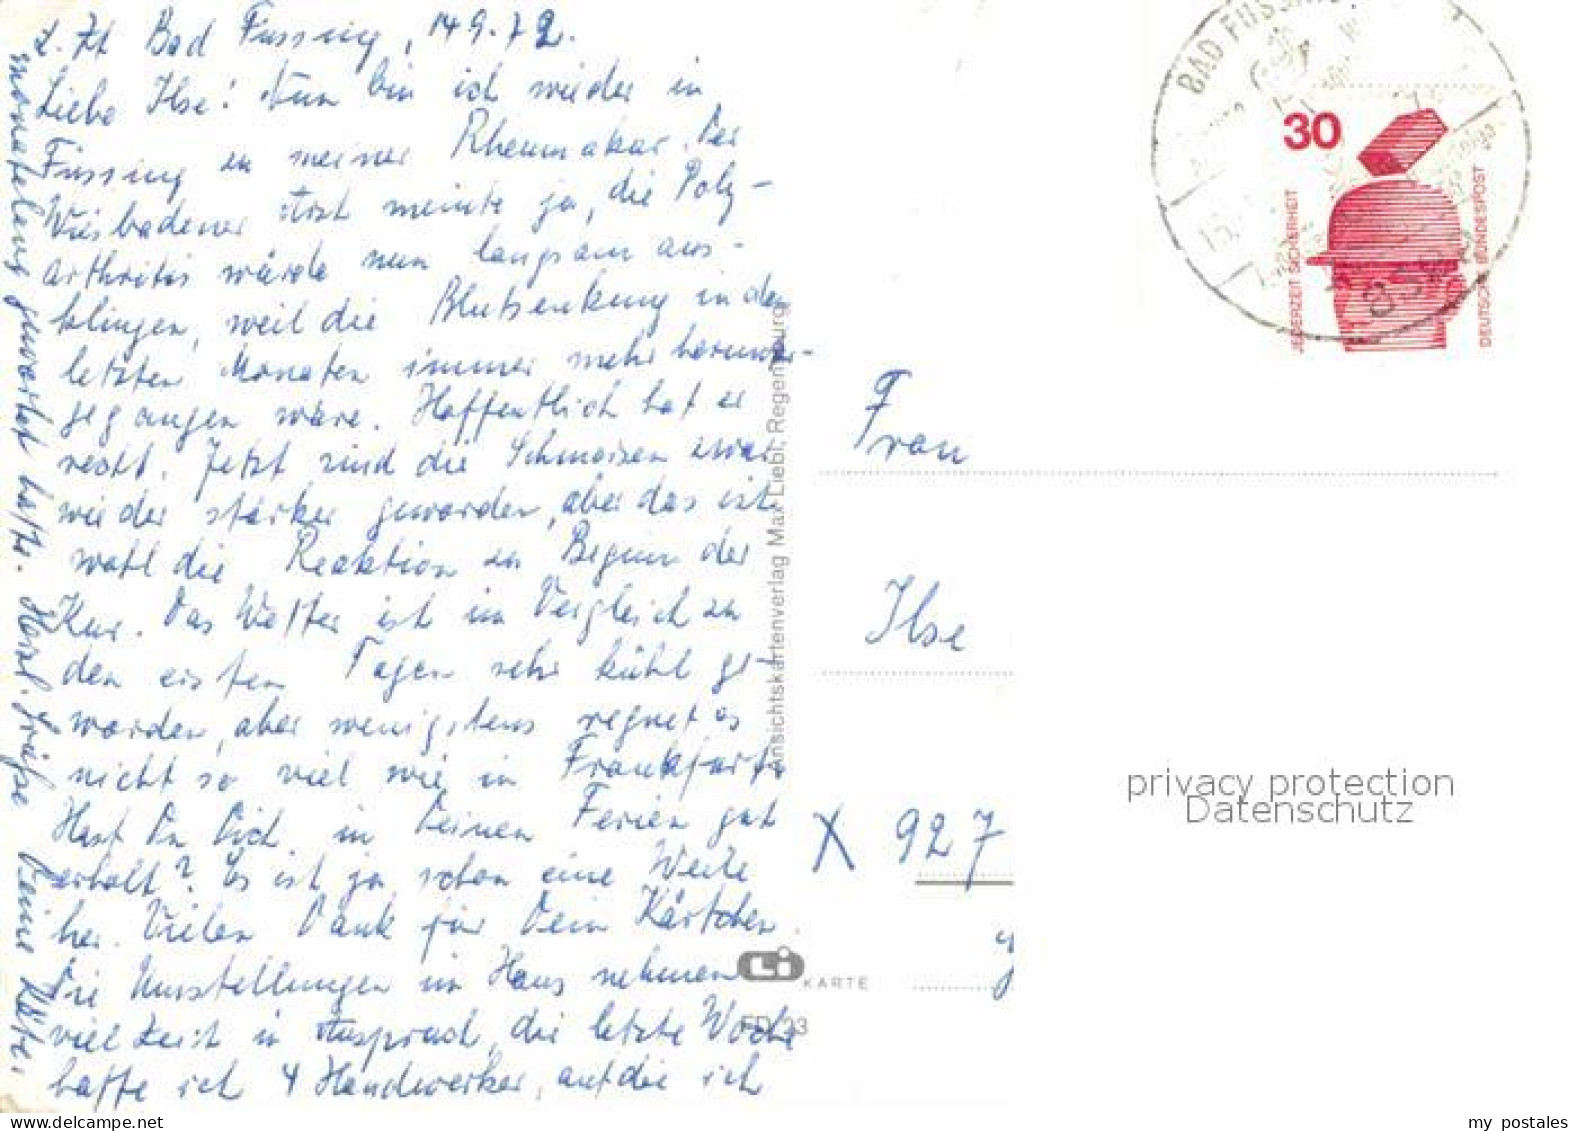 z. Zt Bad Füssing, 14.9.72.
Liebe Ilse! Nun bin ich wieder in
Füssing zu meiner Rheumakur. Der
Wiesbadener Arzt meinte ja, die Poly-
arthritis würde nun langsam aus-
klingen, weil die Blutsenkung in den
letzten Monaten immer mehr herunter-
gegangen wäre. Hoffentlich hat er
recht. Jetzt sind die Schmerzen zwar
wieder stärker geworden, aber das ist
wohl die Reaktion zu Beginn der
Kur. Das Wetter ist im Vergleich zu
den ersten Tagen sehr kühl ge-
worden, aber wenigstens regnet es
nicht so viel wie in Frankfurt.
Hast Du Dich in Deinen Ferien gut
erholt? Es ist ja schon eine Weile
her. Vielen Dank für Dein Kärtchen.
Die Umstellungen im Haus nehmen
viel Zeit in Anspruch, die letzte Woche
hatte ich 4 Handwerker, auf die ich
monatelang gewartet hatte. Herzl. Grüße Deine Käte.
Ansichtskartenverlag Max Liebl, Regensburg
Li KARTE
FD 33
BAD FÜSSING
30
JEDERZEIT SICHERHEIT
DEUTSCHE BUNDESPOST
Frau
Ilse
X 927
privacy protection
Datenschutz
my postales